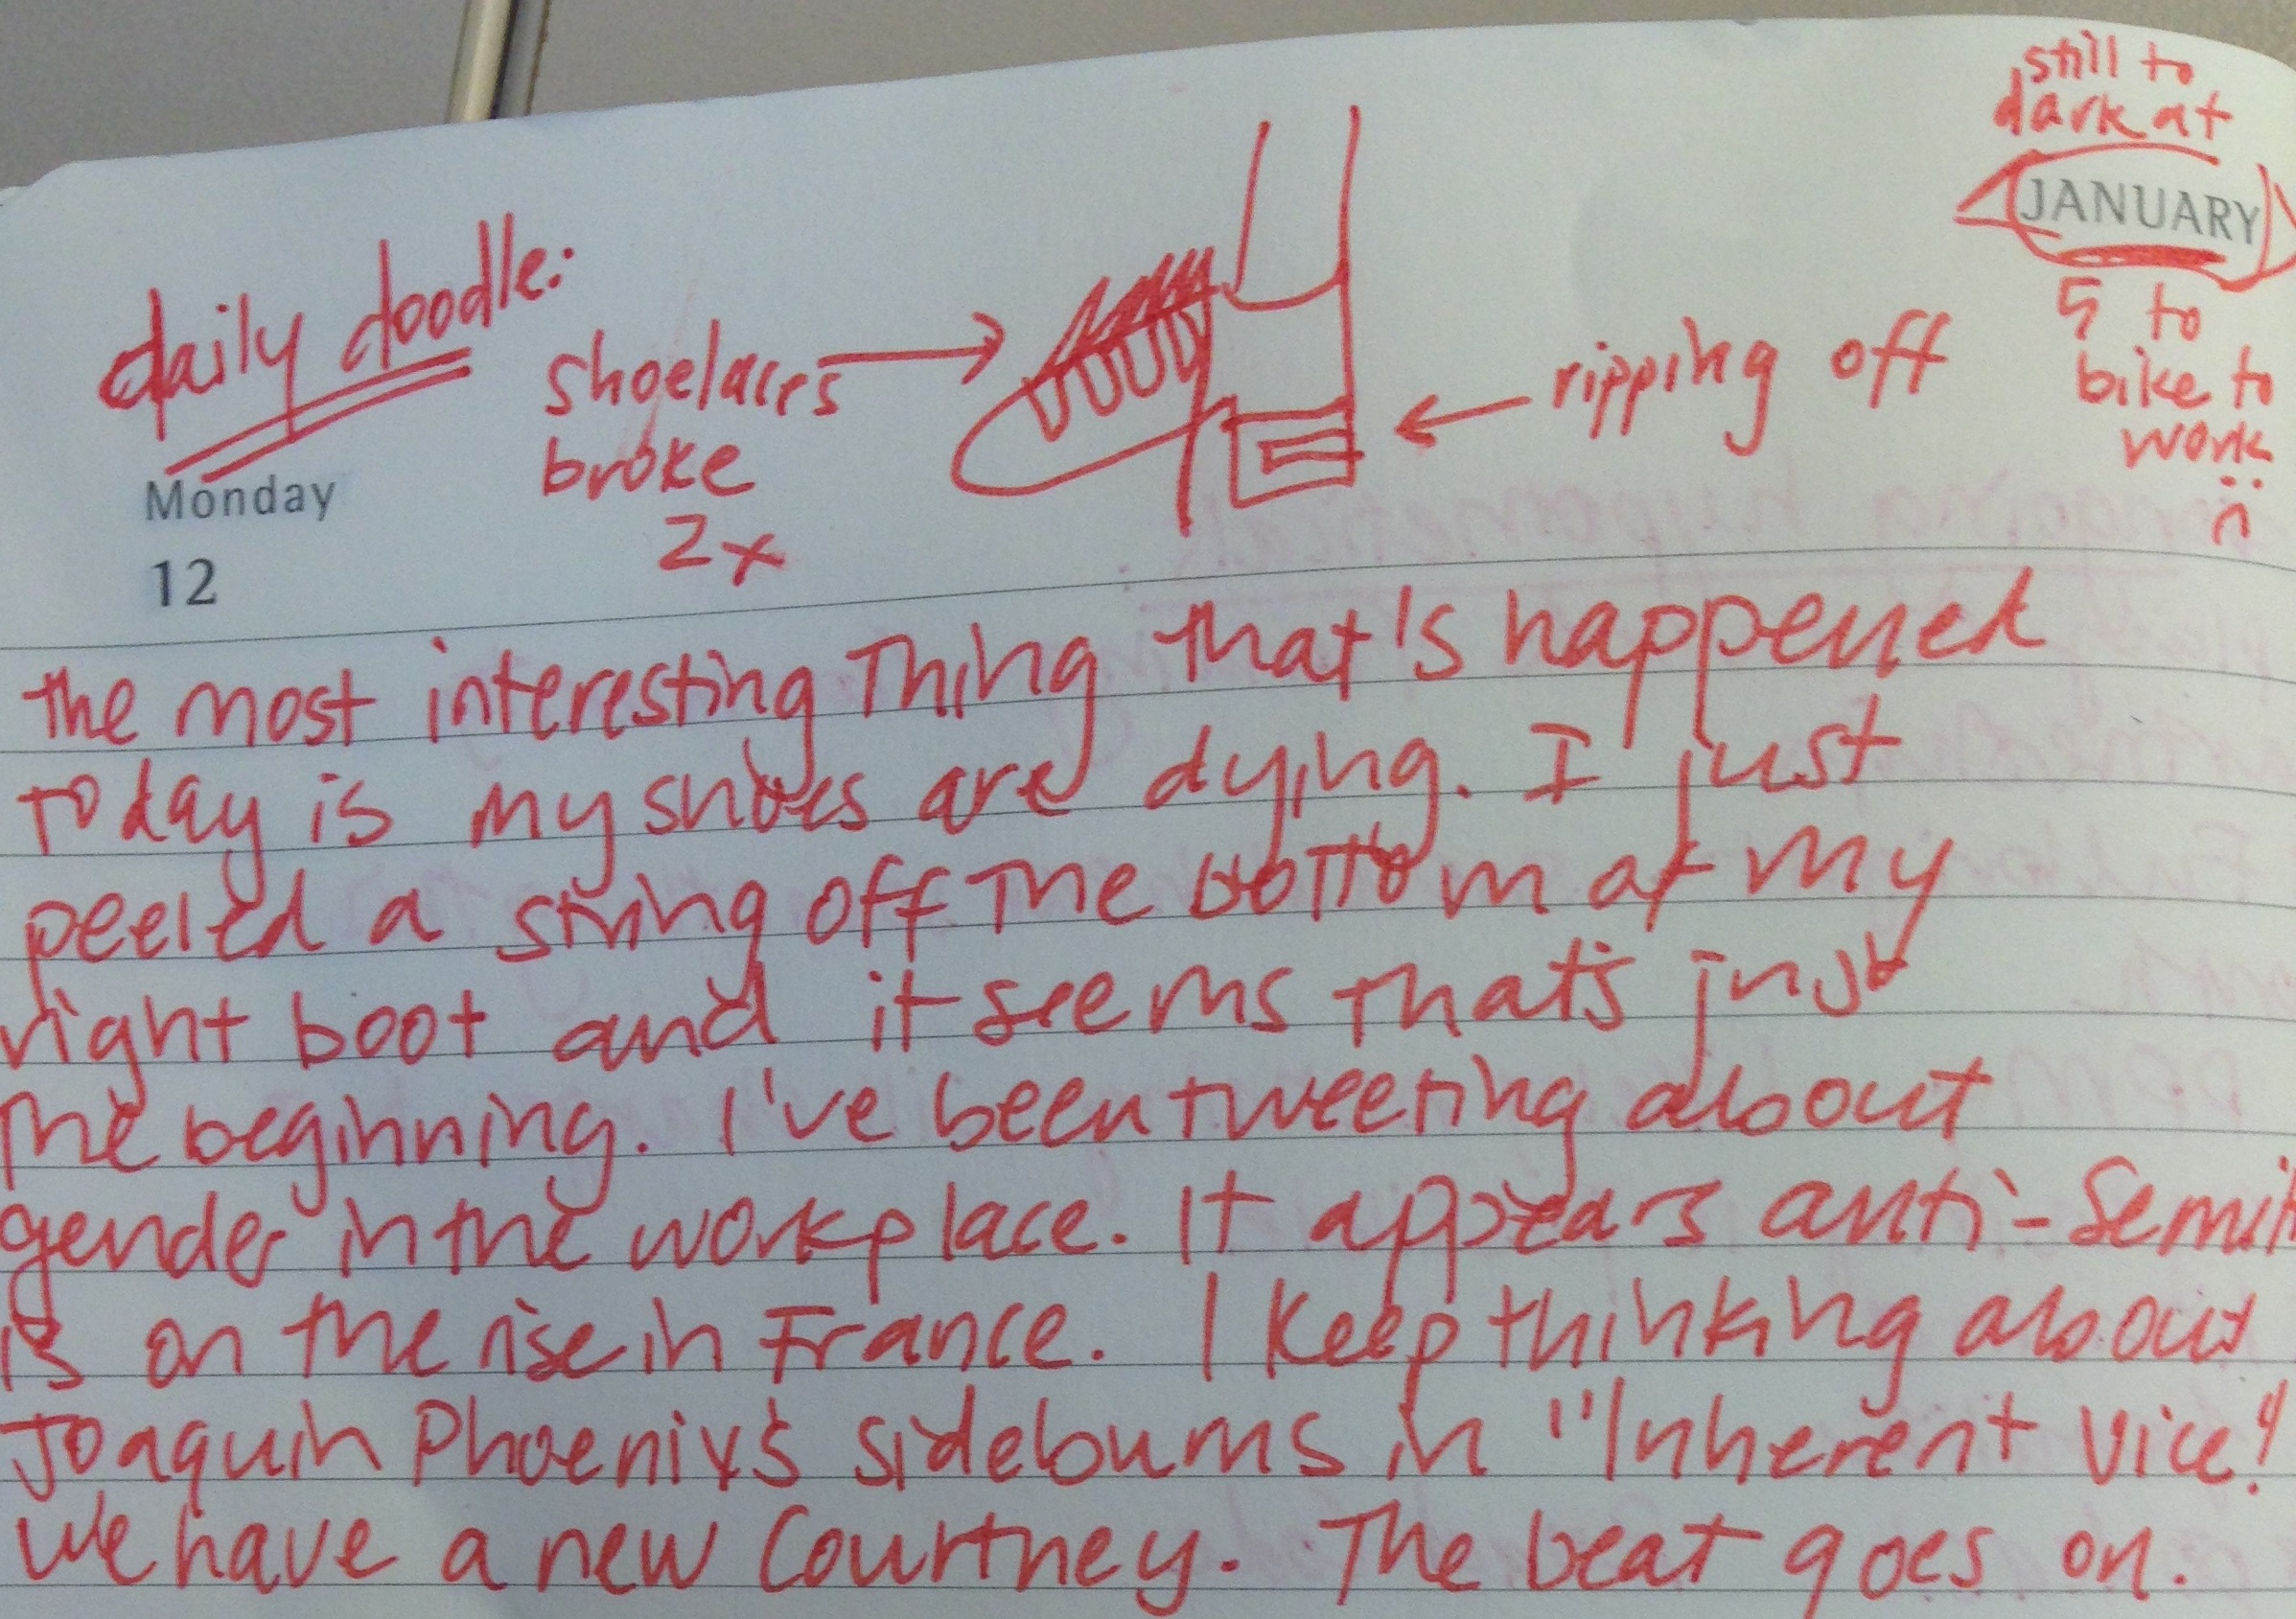 still to
dark at
JANUARY
5 to
bike to
work
:(
daily doodle:
shoelaces
broke
2x
ripping off
Monday
12
the most interesting thing that's happened
today is my shoes are dying. I just
peeled a string off the bottom of my
right boot and it seems that's just
the beginning. I've been tweeting about
gender in the workplace. It appears anti-Semit
is on the rise in France. I keep thinking about
Joaquin Phoenix's sideburns in "Inherent Vice."
We have a new Courtney. The beat goes on.